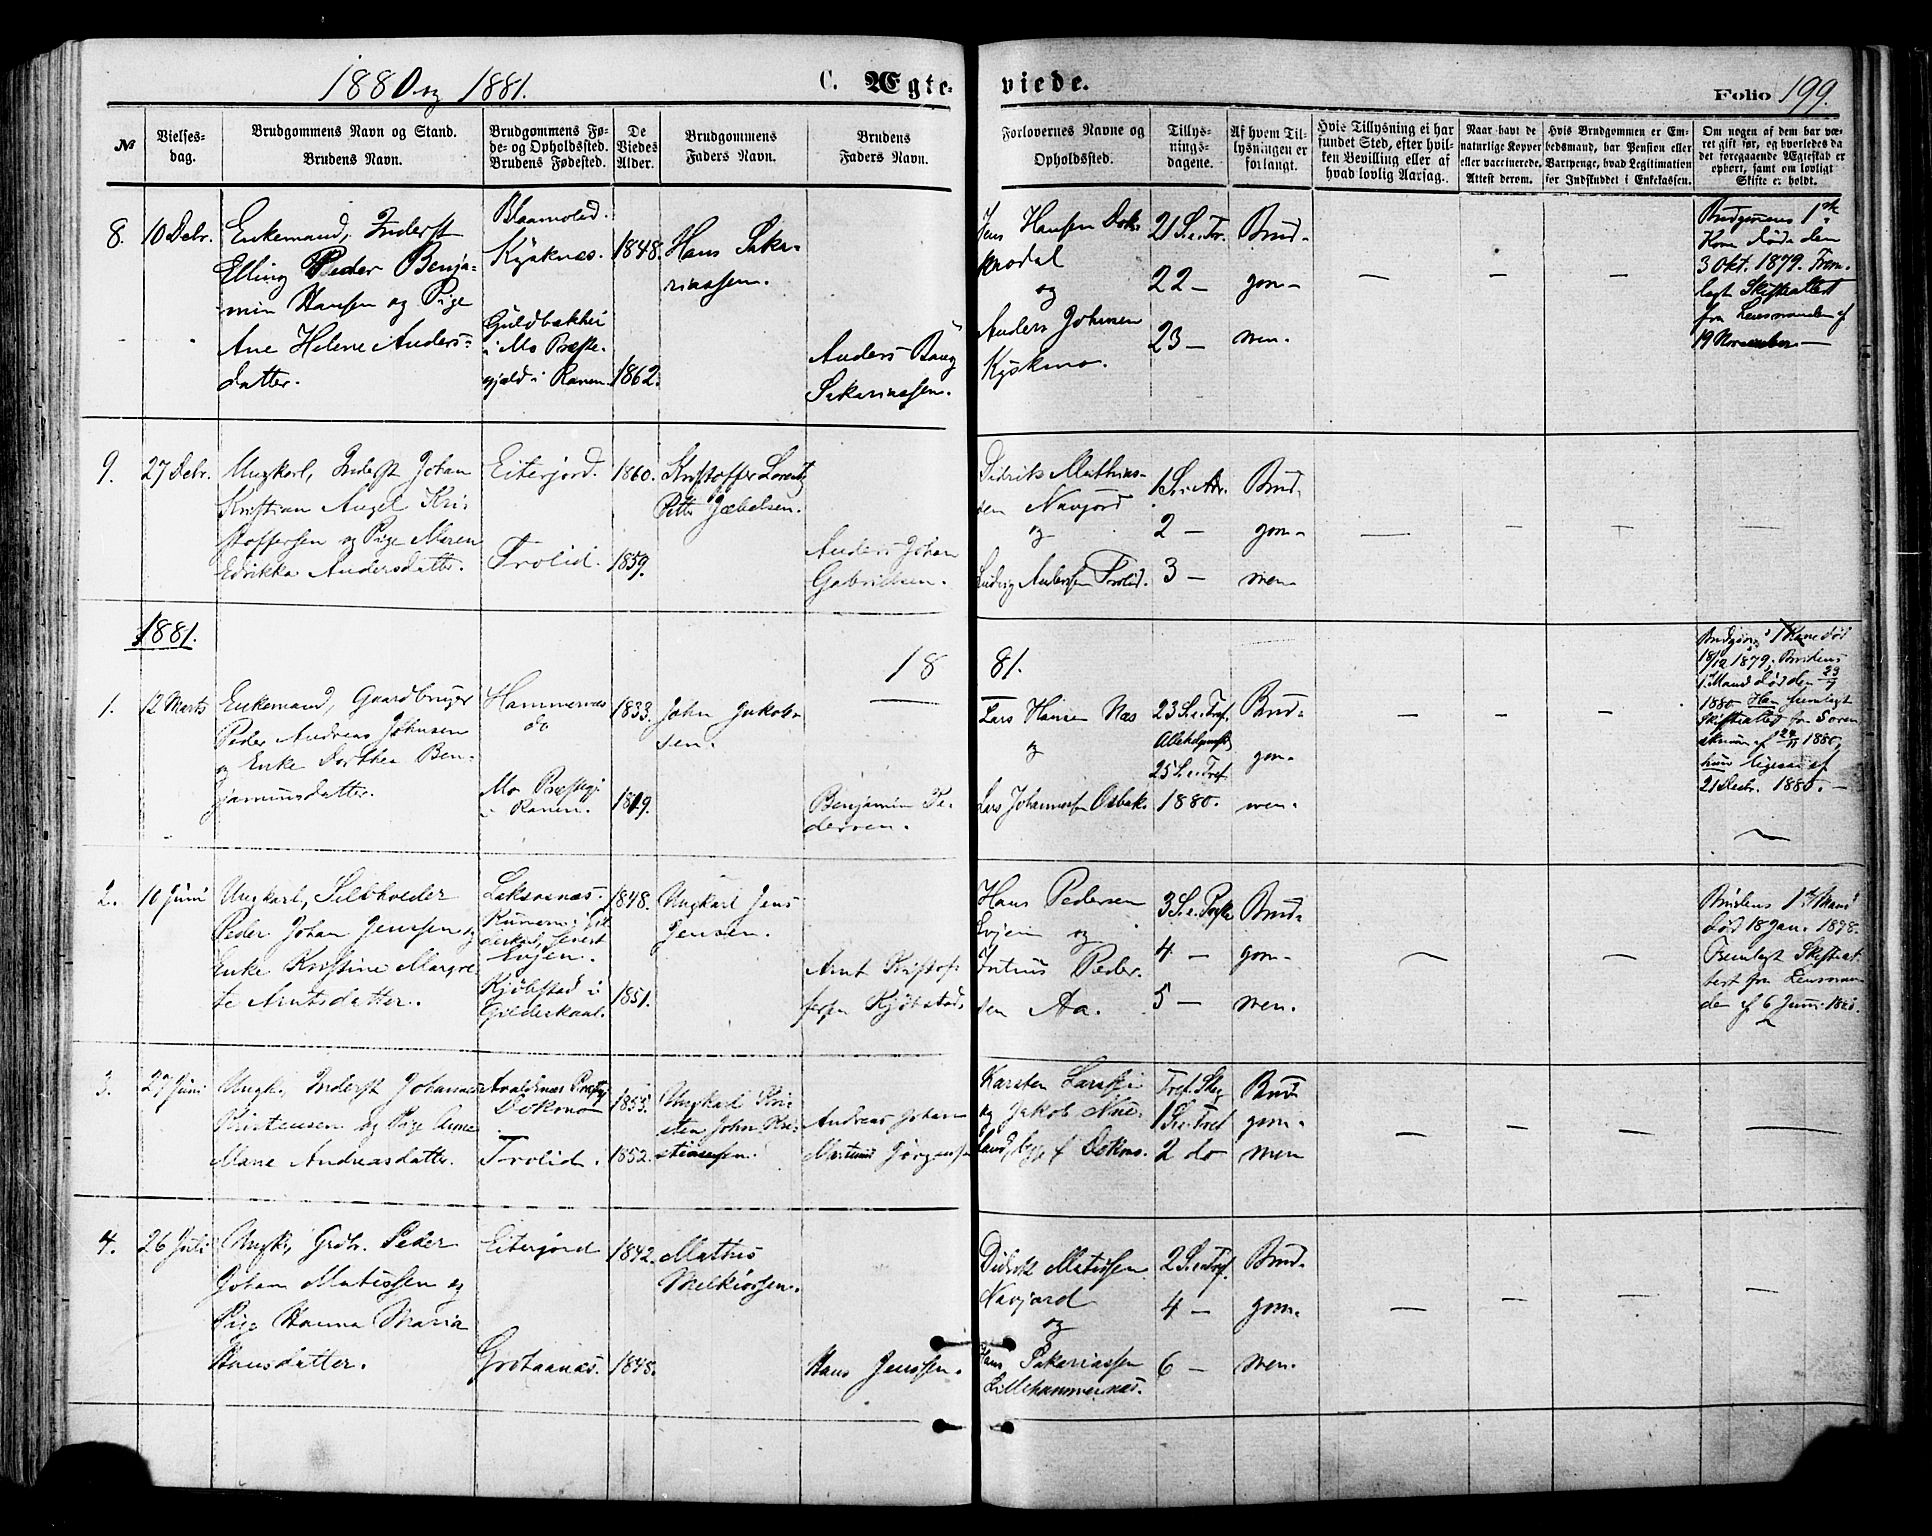 1880 og 1881.
C. Ægte-
viede.
Folio 199.
№
Vielses-
dag.
Brudgommens Navn og Stand.
Brudens Navn.
Brudgommens Fø-
de- og Opholdssted.
Brudens Fødested.
De
Viedes
Alder.
Brudgommens
Faders Navn.
Brudens
Faders Navn.
Forlovernes Navne og
Opholdssted.
Tillys-
nings-
dagene.
Af hvem Til-
lysningen er
forlangt.
Hvis Tillysning ei har
fundet Sted, efter hvil-
ken Bevilling eller af
hvad lovlig Aarsag.
Naar havt de
naturlige Kopper
eller vaccinerede.
Attest derom.
Hvis Brudgommen er Em-
bedsmand, har Pension eller
Vartpenge, hvad Legitimation
for Indskuddet i Enkekassen.
Om nogen af dem har væ-
ret gift før, og hvorledes da
det foregaaende Ægteskab er
ophørt, samt om lovligt
Skifte er holdt.
8.
10 Debr.
Enkemand, Inderst
Elling Peder Benja-
min Hansen og Pige
Ane Helene Anders-
datter.
Blaamolid.
Kjøknæs.
i Mo Præste-
gjeld i Ranen.
1848.
1862.
Hans Saka-
riassen.
Anders Baug
Sakariassen.
Jens Hansen Dok-
modal
og
Anders Johnsen
21 S. e. Tr.
22 —
23 —
Brud-
gom-
men.
—
—
—
Brudgommens 1ste
Kone døde den
3 Okt. 1879. Frem-
lagt Skifteattest
fra Lensmanden af
19 November —
9.
27 Debr.
Ungkarl, Inderst Johan
Kristian Angel Kri-
stoffersen og Pige Maren
Edrikka Andersdatter.
Eiterjord.
Trolid.
1860.
1859.
Kristoffer Lorentz
Petter Jæbelsen.
Anders Johan
Gabrielsen.
Didrik Mathias-
sen Navjord
og
Ludvig Andersen Trolid.
1 S. i Adv.
2 —
3 —
Brud-
gom-
men.
—
—
—
—
1881.
18
81.
1.
12 Marts
Enkemand, Gaardbruger
Peder Andreas Johnsen
og Enke Dorthea Ben-
jaminsdatter.
Hammernæs
do
Mo Præstegj.
i Ranen.
1833.
1819.
John Jakob-
sen.
—
Benjamin Pe-
dersen.
Lars Hansen Næs
og
Lars Johannessen Osbak.
23 S. e. Tref.
25 S. e. Tref.
1880.
Brud-
gom-
men.
—
—
—
Brudgoms 1 Kone død
18/12 1879, Brudens
1. Mand død den
1880. Han fremlagt
Skifteattest fra Soren-
skriver af 1880,
hun ligesaa af
21 Decbr. 1880. —
2.
10 Juni
Ungkarl, Selvhveder
Peder Johan Jenssen og
Enke Kristine Margre-
te Arntsdatter.
Laksaanæs
Evjen.
Kjøbstad i
Gilderskaal.
1848.
1851.
Ungkarl Jens
Jensen.
Arnt Kristof-
fersen Kjøbstad.
Hans Pedersen
Evjen og
Julius Peder-
sen Aa.
3 S. e. Paaske
4 —
5 —
Brud-
gom-
men.
—
—
—
Brudens 1ste Mand
død 18 Jan. 1878.
Fremlagt Skifteat-
test fra Lensman-
den af 6 Juni 1881.
3.
27 Juni
Ungk., Inderst Johannes
Kristensen og Pige Anne
Mane Andreasdatter.
Avaldsnæs Præstgj
Dokmo
Trolid.
1855.
1852.
Ungkarl Kri-
sten John Kri-
stiansen.
Andreas Johan
Martinus Jørgensen
Karsten Larsen
og Jakob Nue-
land, begge af Dokmo.
1 S. e. Tref
2 do
Brud-
gom-
men
—
—
—
—
4.
26 Juli
Ungk., Grdbr. Peder
Johan Matissen og
Pige Hanna Maria
Hansdatter.
Eiterjord
Grotaanæs.
1842.
1848.
Mathis
Melkiorsen.
Hans Jenssen.
Didrik Matissen
Navjord
og
Hans Sakariassen
Lillehammernæs.
2 S. e. Tref.
4 —
6 —
Brud-
gom-
men.
—
—
—
—